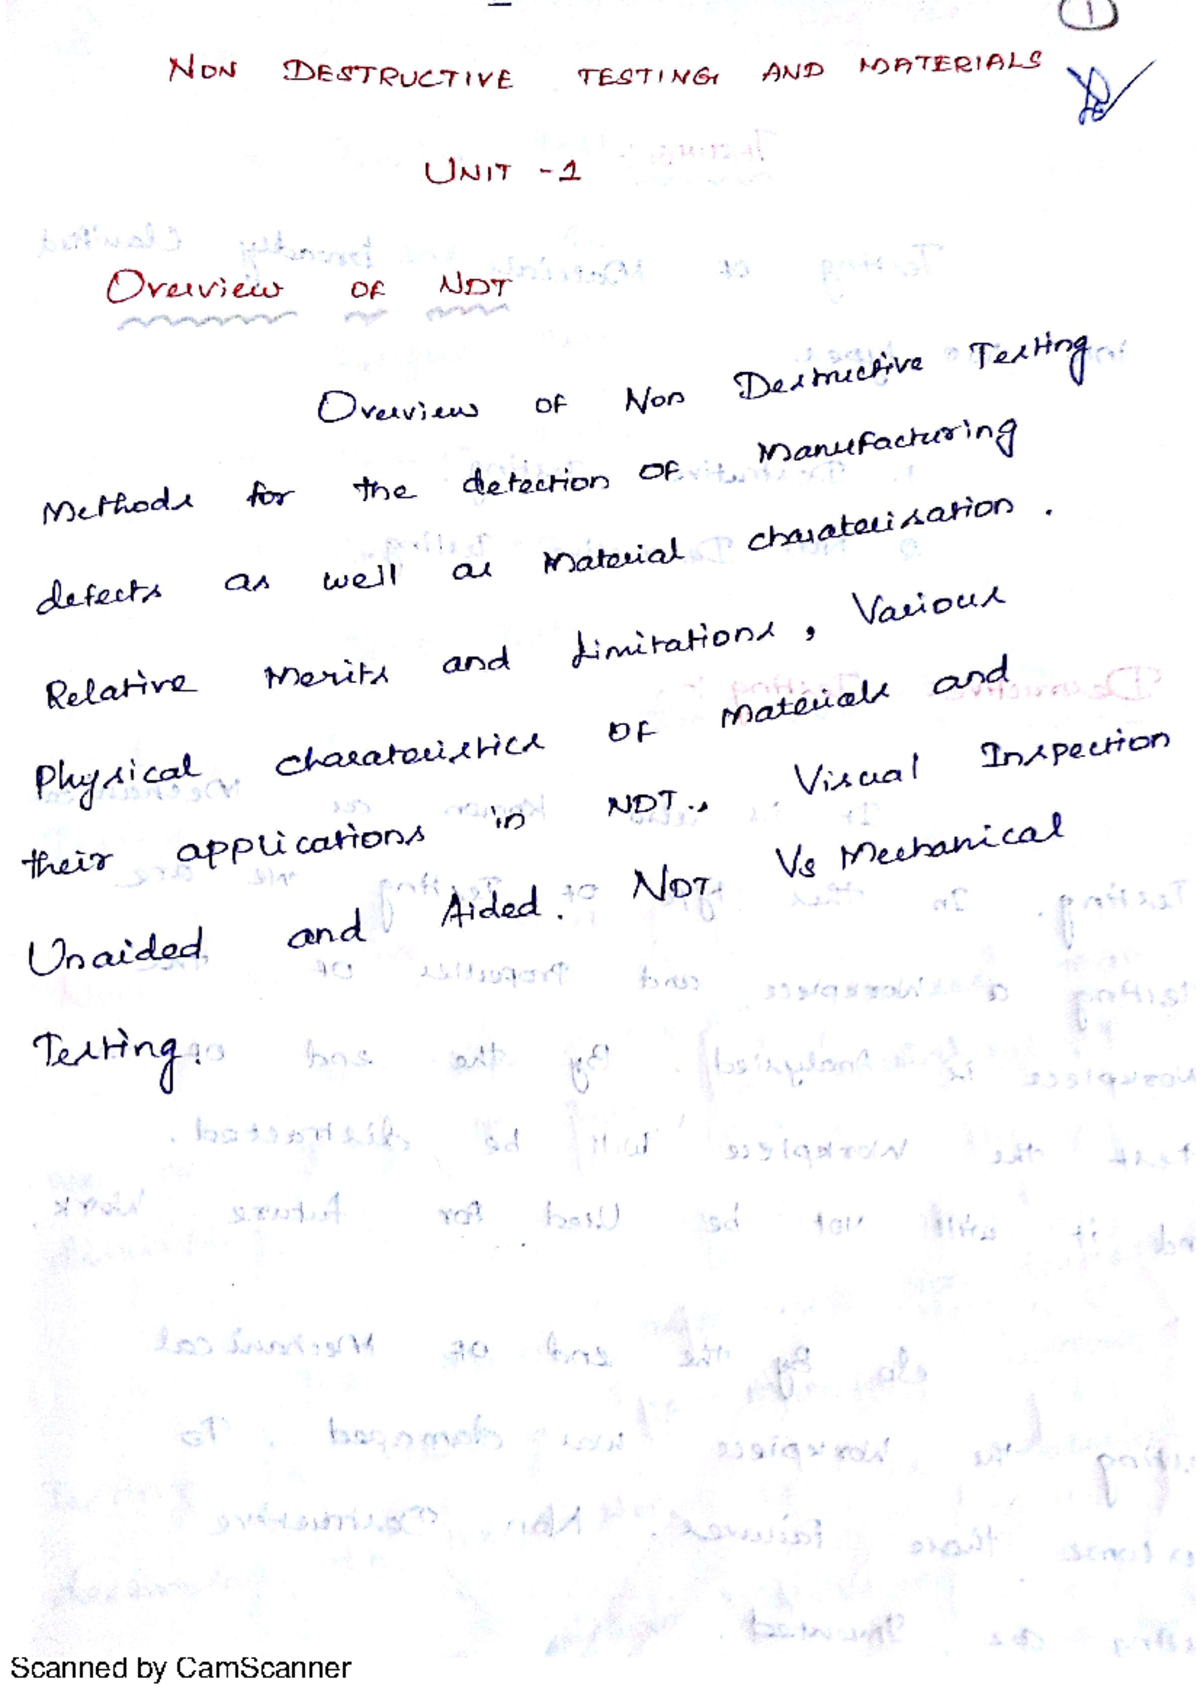 1
NON DESTRUCTIVE TESTING AND MATERIALS
UNIT -1
Overview OF NDT
Overview OF Non Destructive Testing
Methods for the detection OF Manufacturing
defects as well as Material charaterisation.
Relative Merits and Limitations, Various
Physical charateristics OF Materials and
their applications in NDT., Visual Inspection
Unaided and Aided. NDT Vs Mechanical
Testing.
Scanned by CamScanner